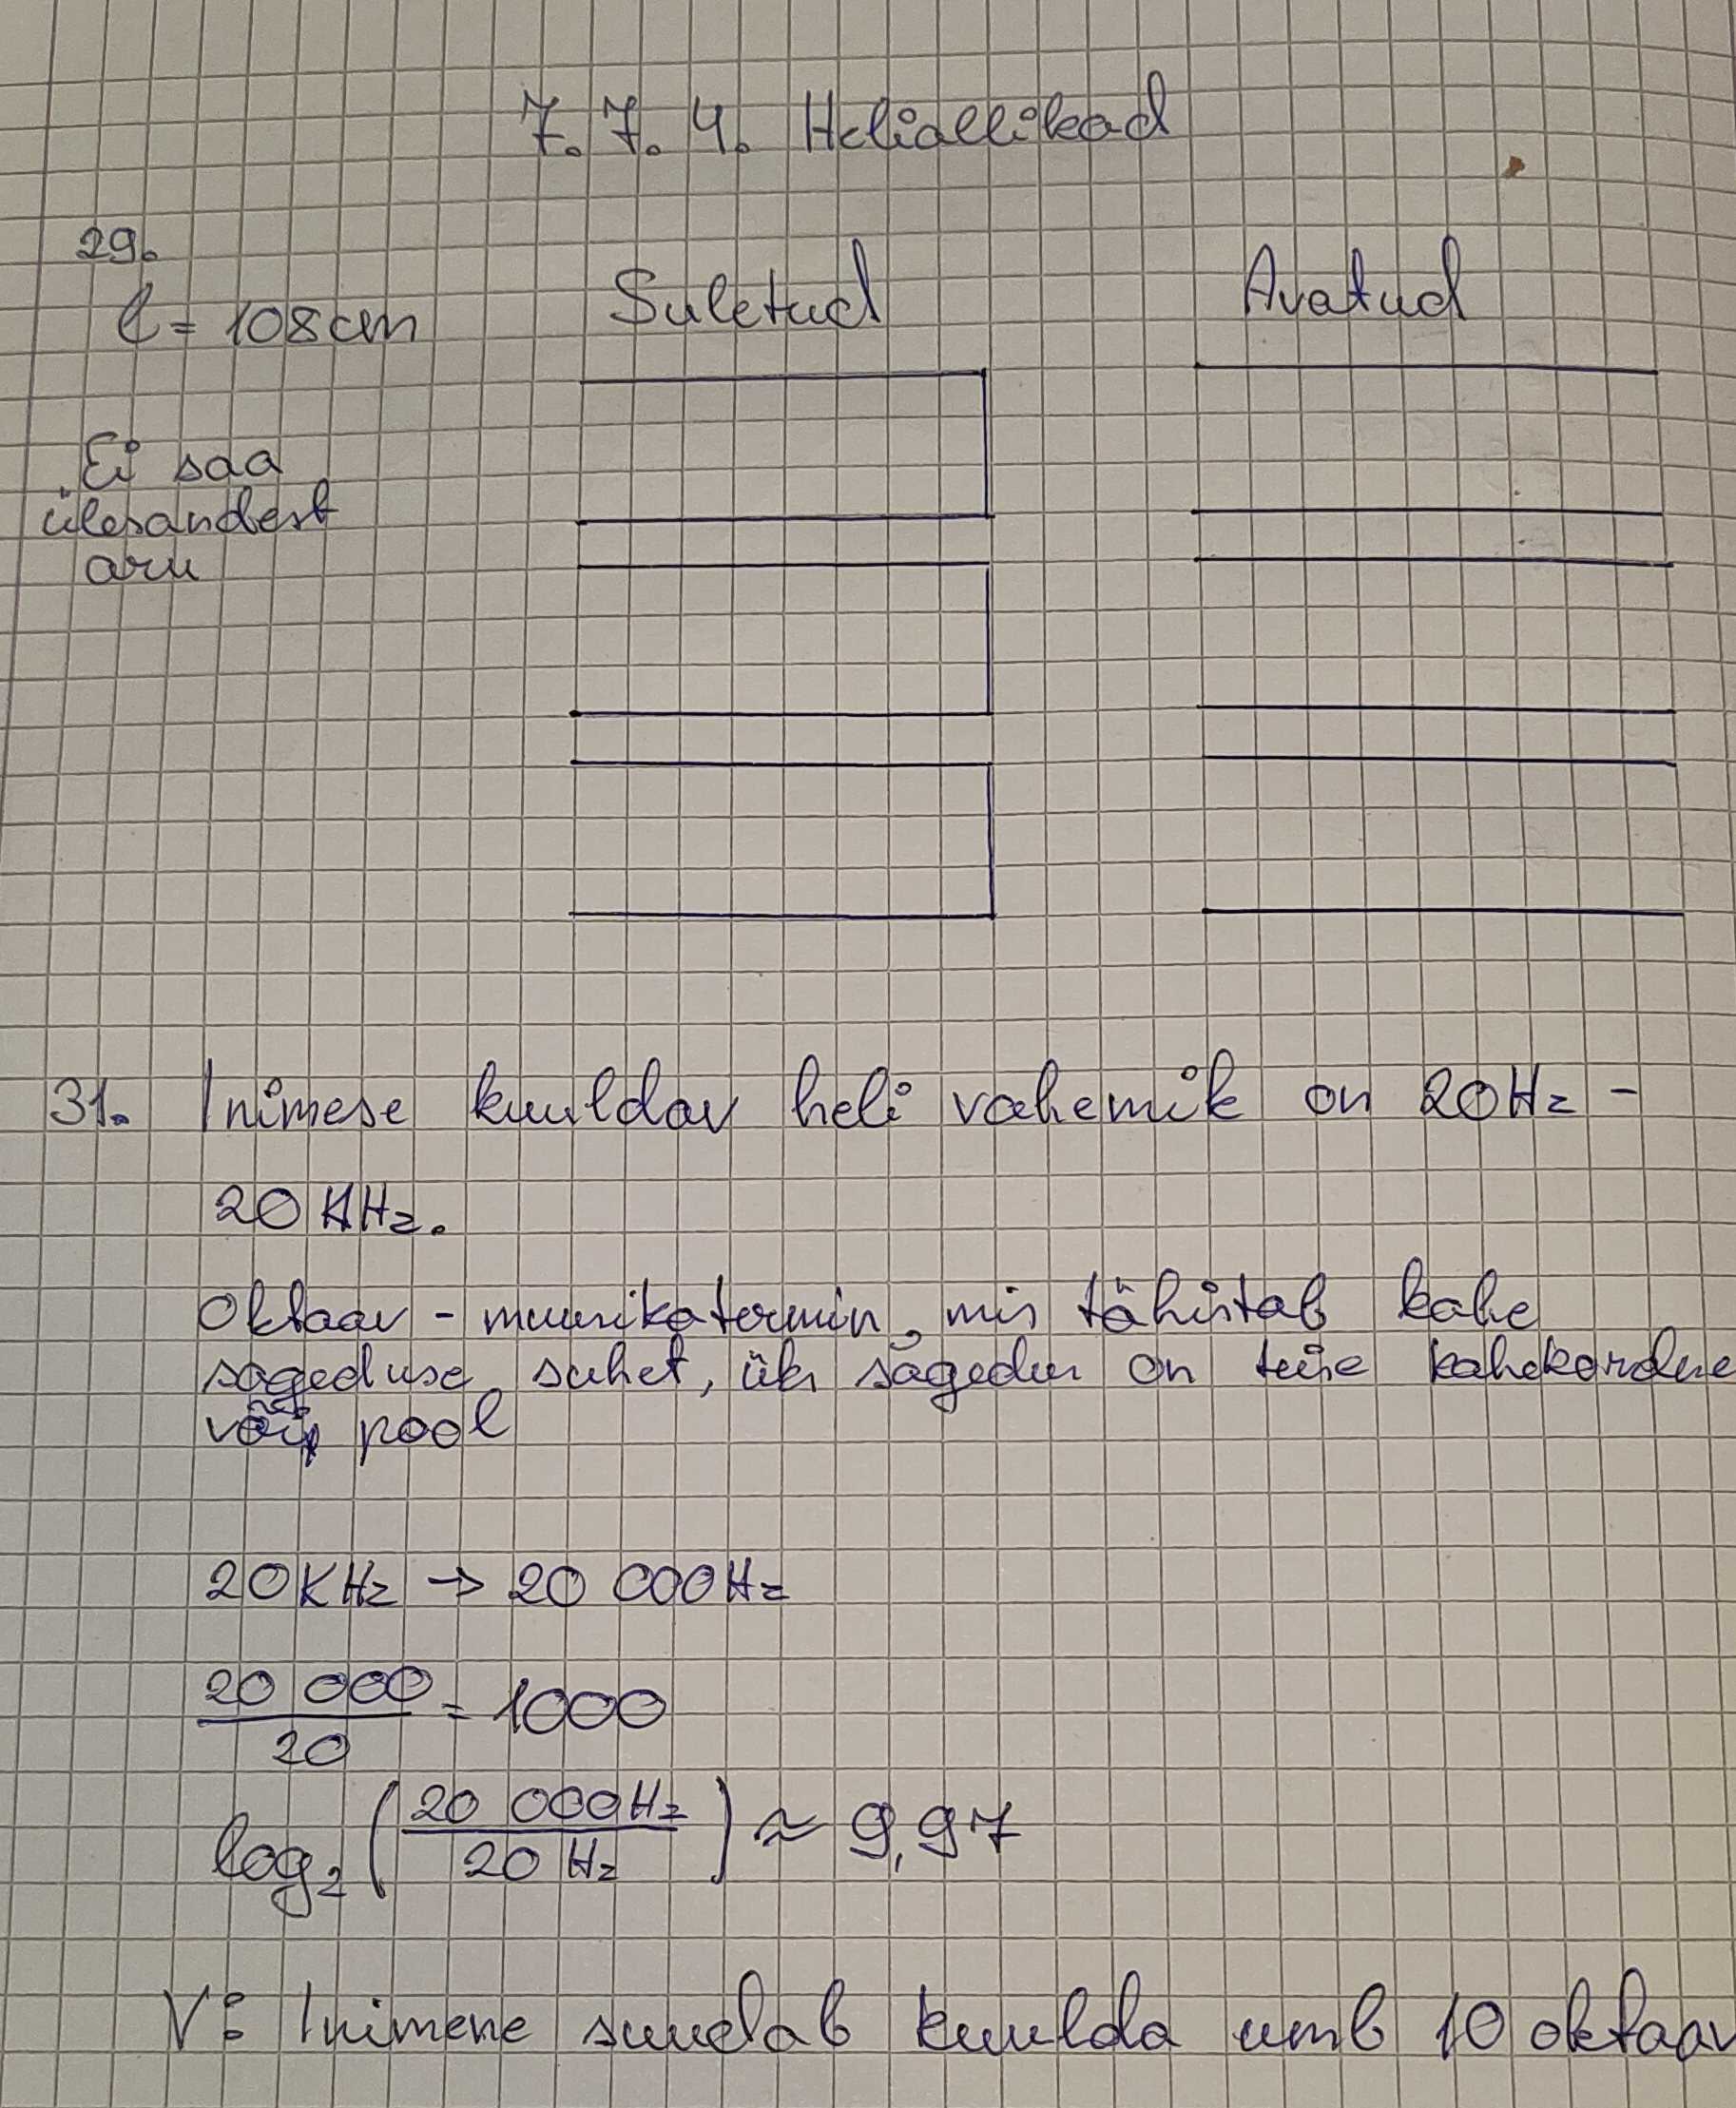 7.7.4. Heliallikad
29.
l = 108cm
Suletud
Avatud
Ei saa
ülesandest
aru
31. Inimese kuuldav heli vahemik on 20Hz -
20 KHz.
Oktaav - muusikatermin, mis tähistab kahe
sageduse suhet, üks sagedus on teise kahekordne
või pool
20KHz → 20 000Hz
20 000/20 = 1000
log₂ (20 000Hz/20 Hz) ≈ 9,97
V: Inimene suudab kuulda umb 10 oktaav